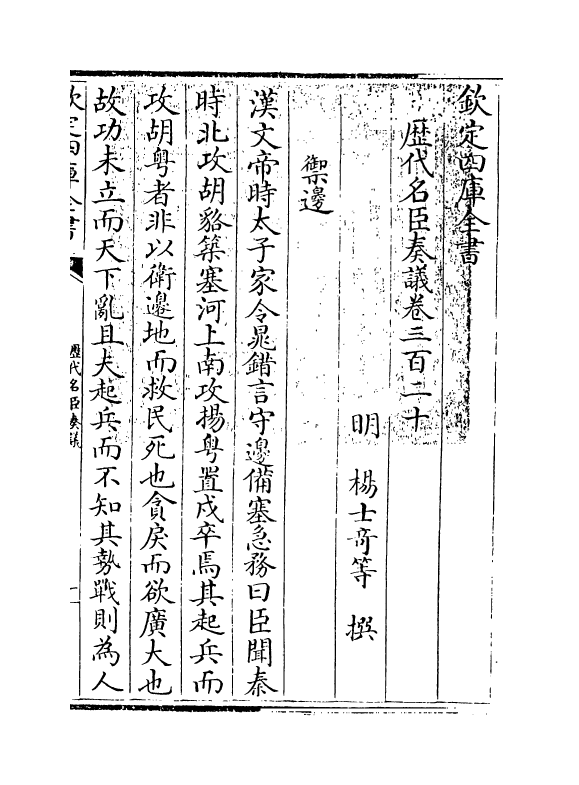 欽定四庫全書
歴代名臣奏議卷三百二十
明 楊士竒等 撰
禦邊
漢文帝時太子家令晁錯言守邊備塞急務曰臣聞秦
時北攻胡貉築塞河上南攻揚粤置戍卒焉其起兵而
攻胡粤者非以衛邊地而救民死也貪戾而欲廣大也
故功未立而天下亂且夫起兵而不知其勢戰則為人
欽定四庫全書
歴代名臣奏議
一